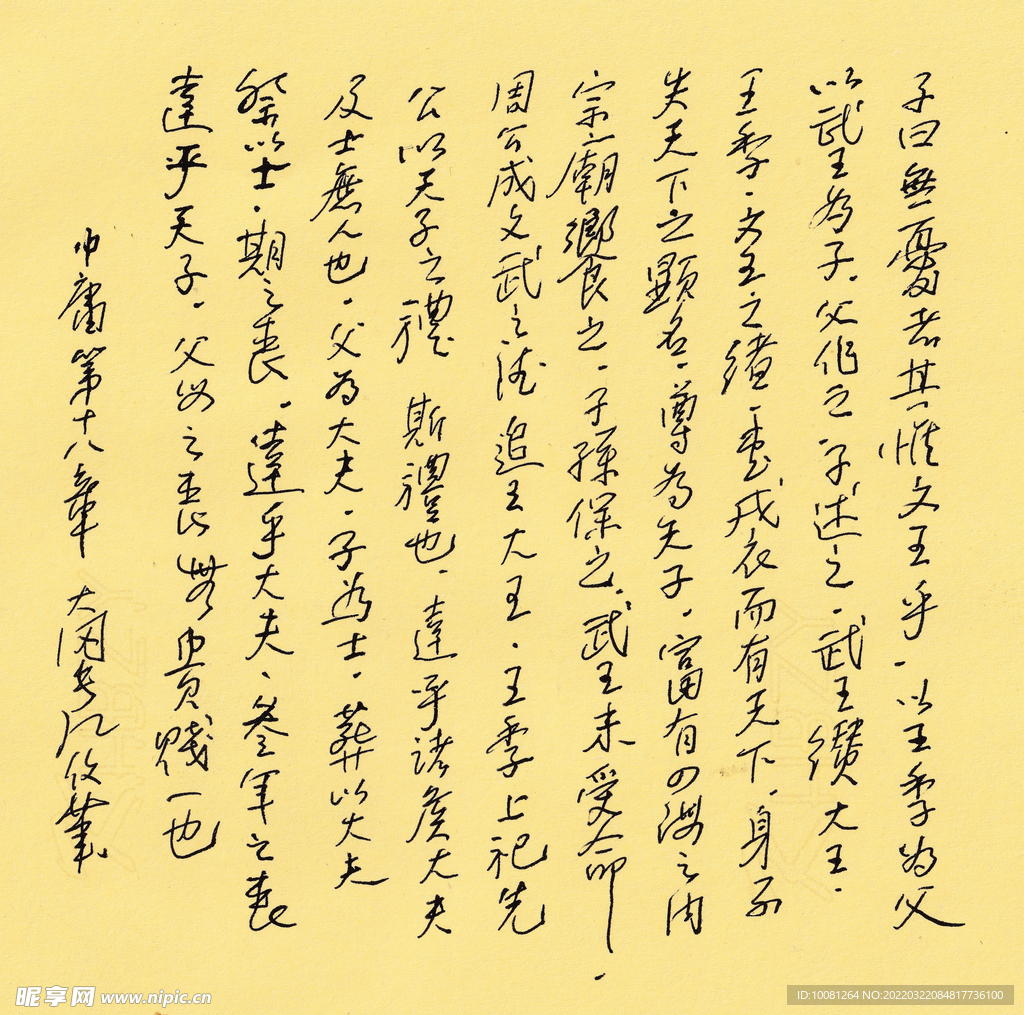 子曰無憂者其惟文王乎、以王季為父
以武王為子、父作之、子述之、武王纘大王、
王季、文王之緒、壹戎衣而有天下、身不
失天下之顯名、尊為天子、富有四海之內
宗廟饗之、子孫保之、武王末受命、
周公成文武之德 追王大王、王季上祀先
公以天子之禮 斯禮也、達乎諸侯大夫
及士庶人也、父為大夫、子為士、葬以大夫
祭以士、期之喪、達乎大夫、叁年之喪
達乎天子、父母之喪無貴賤一也
中庸第十八章
昵享网 www.nipic.cn
ID:10081264 NO:20220322084817736100